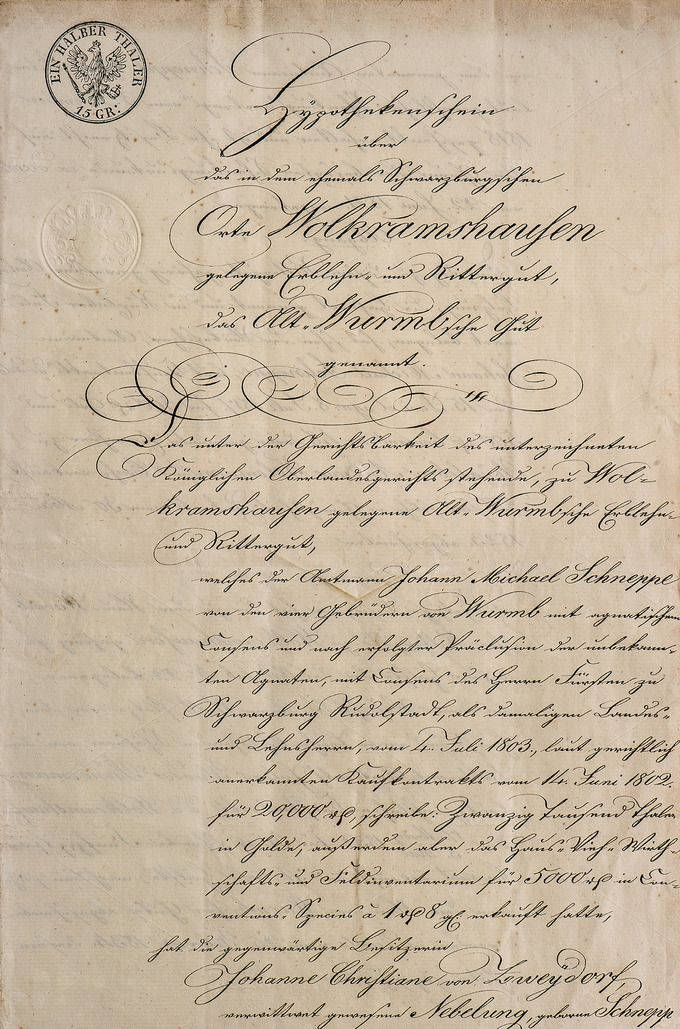 EIN HALBER THALER
15 GR:
Hypothekenschein
über
das in dem ehemals Schwarzburgschen
Orte Wolkramshausen
gelegene Erblehn- und Rittergut,
das Alt-Wurmbsche Gut
genannt.
Das unter der Gerichtsbarkeit des unterzeichneten
Königlichen Oberlandesgerichts stehende, zu Wol-
kramshausen gelegene Alt-Wurmbsche Erblehn-
und Rittergut,
welches der Amtmann Johann Michael Schneppe
von den vier Gebrüdern von Wurmb mit agnatischem
Consens und nach erfolgter Präclusion der unbekann-
ten Agnaten, mit Consens des Herrn Fürsten zu
Schwarzburg Rudolstadt, als damaligen Landes-
und Lehnsherrn, vom 4. Juli 1803., laut gerichtlich
anerkannten Kaufkontrakts vom 14. Juni 1802.
für 20,000 rß, schreibe: Zwanzig Tausend Thaler
in Golde, außerdem aber das Haus- Vieh- Wirth-
schafts- und Feldinventarium für 5000 rß in Con-
ventions-Species à 1 rß 8 gl. erkauft hatte,
hat die gegenwärtige Besitzerin
Johanne Christiane von Zweydorf,
verwittwet gewesene Nebelung, geborne Schnepp